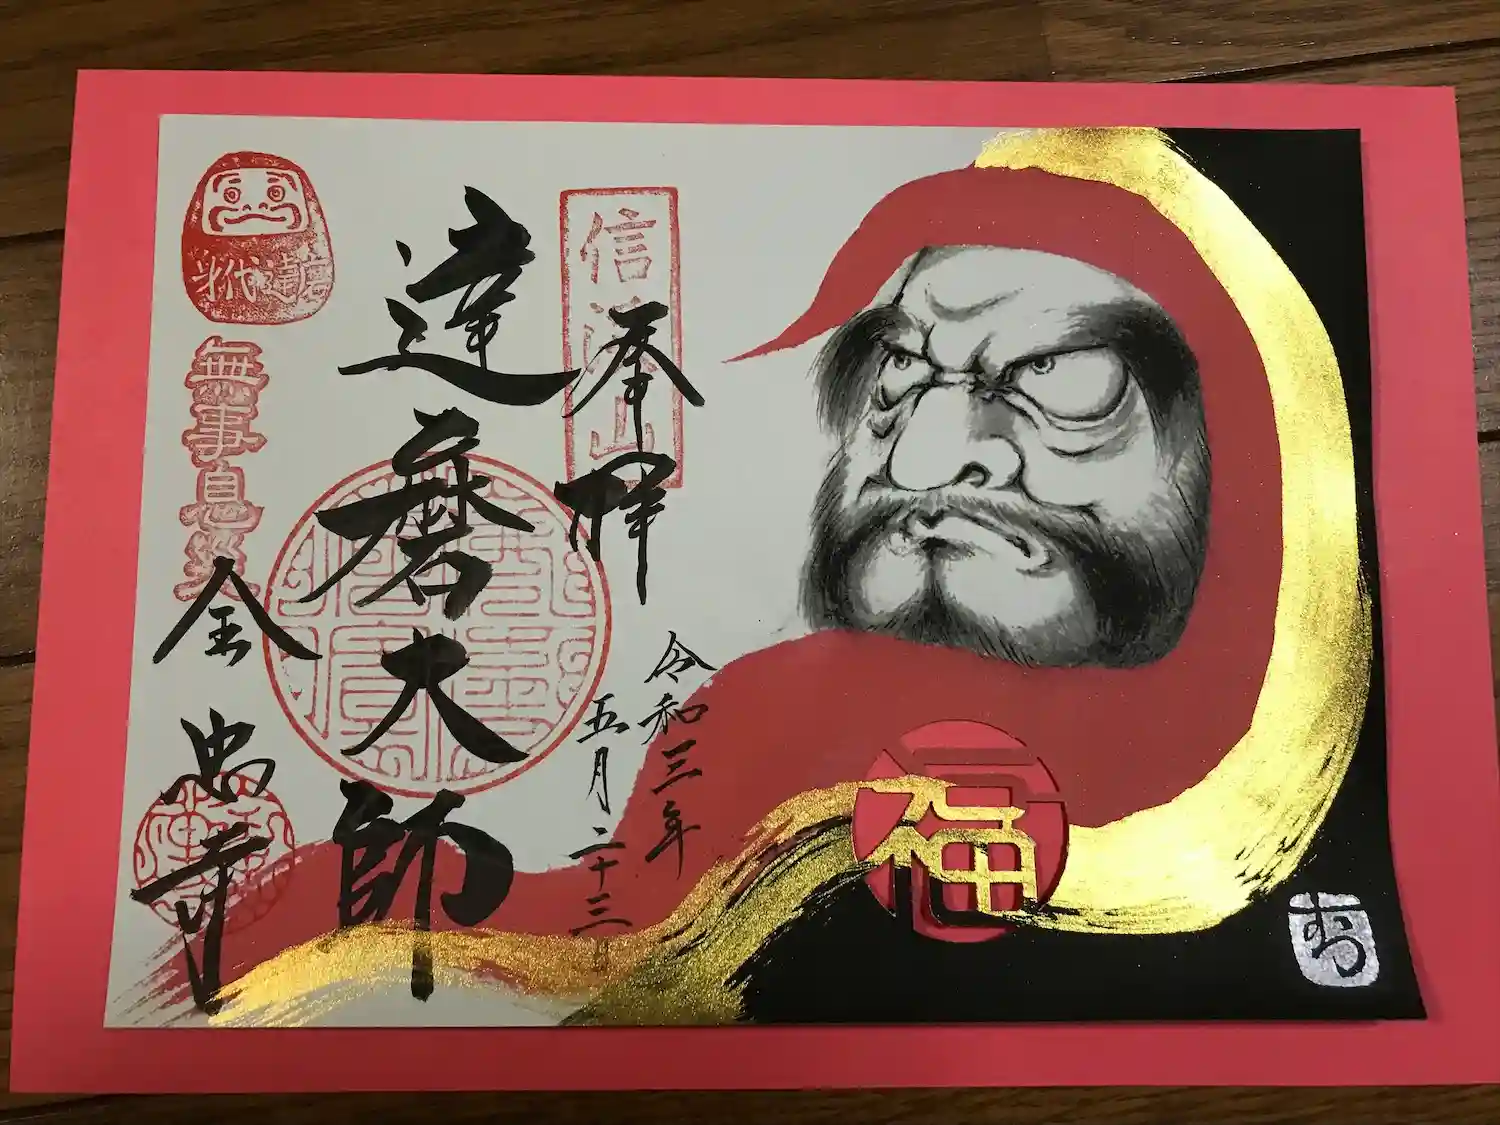 信山
奉拝
令和三年
五月二十三日
達磨大師
身代達磨
無事息災
全忠寺
福